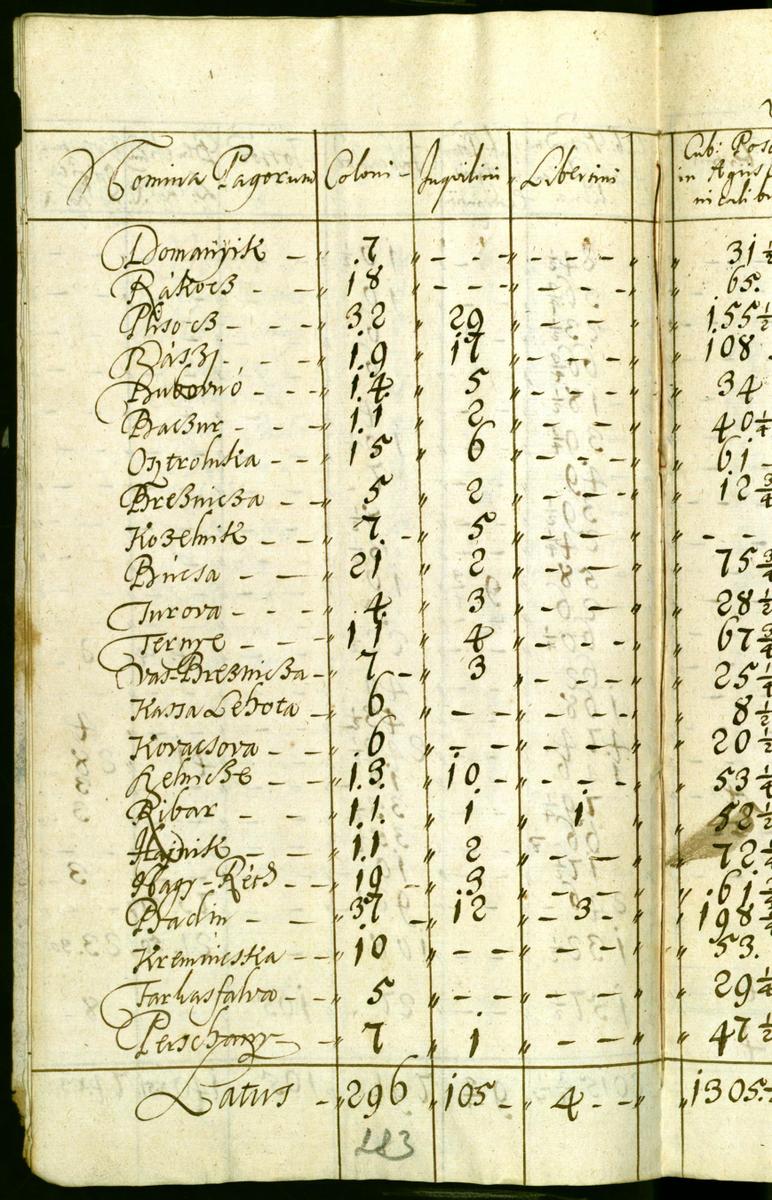 Nomina Pagorum Coloni Inquilini Libertini Cub: in Agris
Domanyik 7 - - - - - - 31
Rákocz 18 - - - - - - 65.
Plisocz 32 29 - - - 155 1/2
Rászj 19 17 - - - 108
14 5 - - - 34
Baczur 11 2 - - - 40 1/4
Osztroluka 15 6 - - - 61
Breznicza 5 2 - - - 12 3/4
Kozelnik 7 5 - - - - -
Búcsa 21 2 - - - 75 3/4
Turova 4 3 - - - 28 1/2
Ternye 11 4 - - - 67 3/4
Vas-Breznicza 7 3 - - - 25 1/4
Kassa Lehota 6 - - - - - 8 1/2
Kovacsova 6 - - - - - 20 1/2
Relnicze 13 10 - - - 53 1/4
Ribar 11 1 1 58 1/2
Hajnik 11 2 - - - 72 1/4
Nagy-Réth 19 3 - - - 61 1/2
Badin 37 12 3 198 1/2
Kremnicska 10 - - - - - - 53.
Farkasfalva 5 - - - - - 29 1/4
7 1 - - 47 1/2
Latus 296 105 4 1305